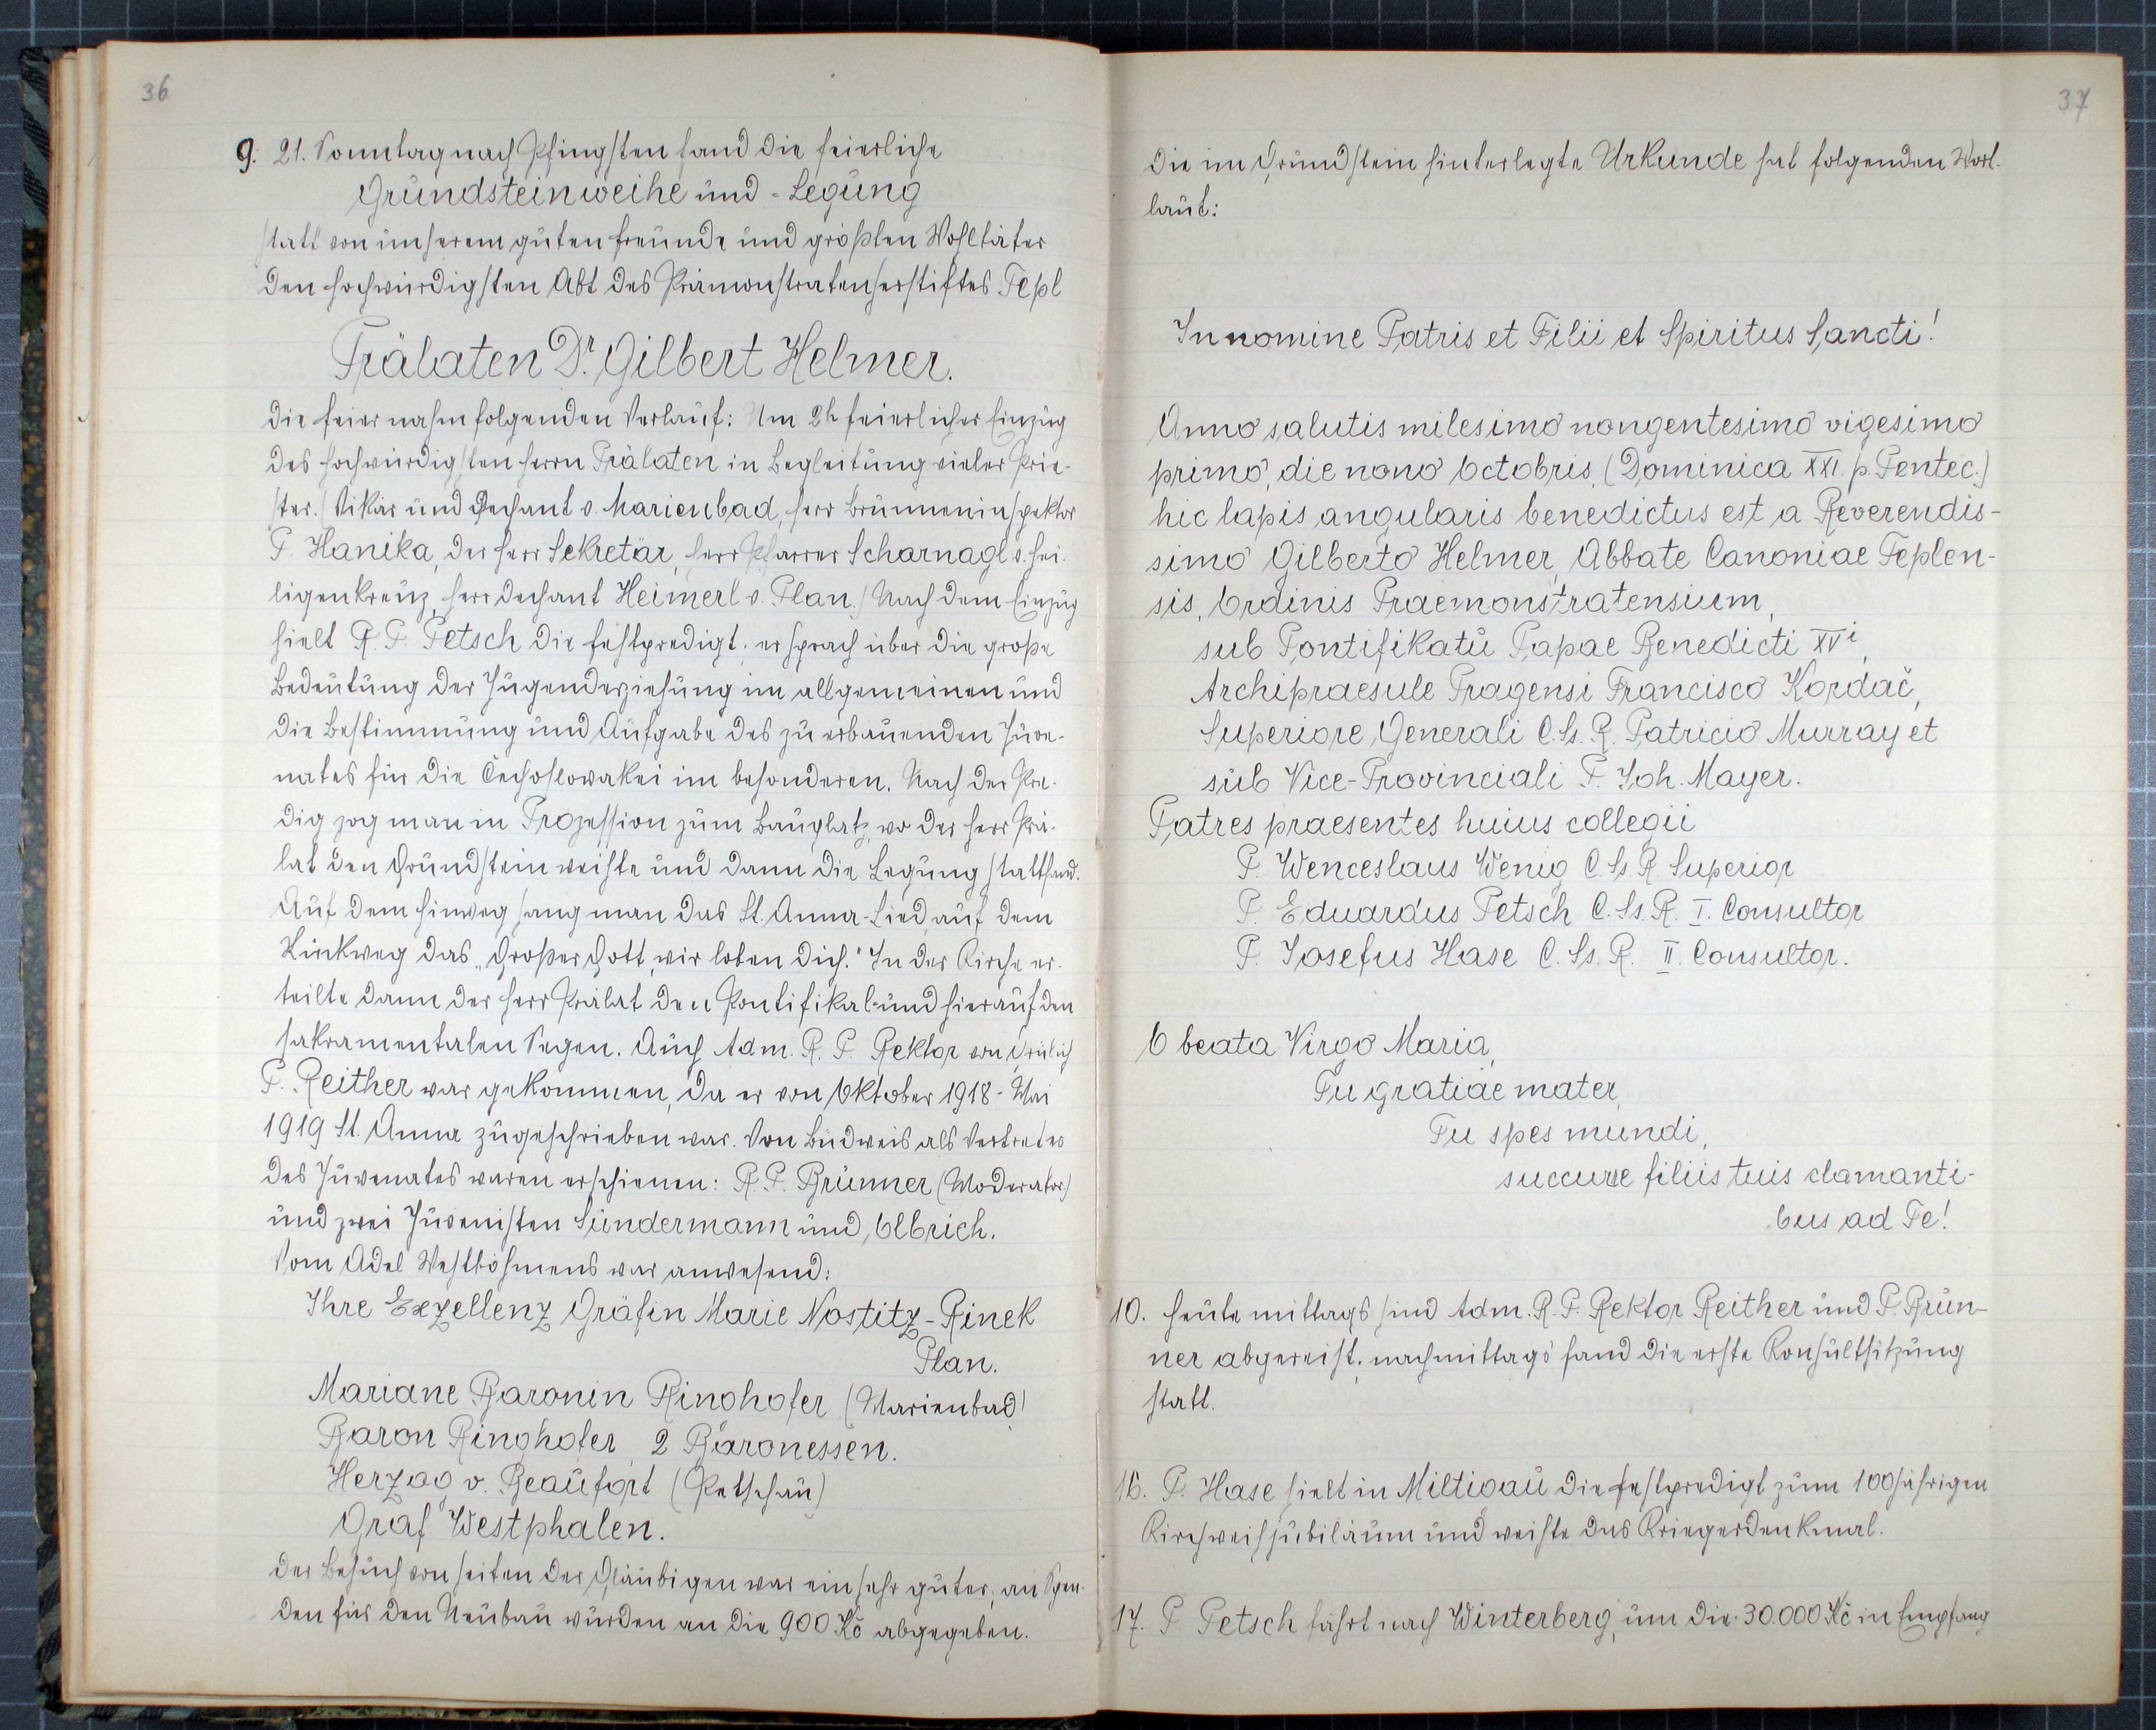 36
9. 21. Sonntag nach Pfingsten fand die feierliche
Grundsteinweihe und -Legung
statt von unserem guten Freunde und größten Wohltäter
den hochwürdigsten Abt des Prämonstratenserstiftes Tepl
Prälaten Dr. Gilbert Helmer.
Die Feier nahm folgenden Verlauf: Um 2h feierlicher Einzug
des hochwürdigsten Herrn Prälaten in Begleitung vieler Prie-
ster. (Vikar und Dechant v. Marienbad, Herr Brunneninspektor
P. Hanika, der Herr Sekretär, Herr Pfarrer Scharnagl v. Hei-
ligenkreuz, Herr Dechant Heimerl v. Plan.) Nach dem Einzug
hielt R. P. Petsch die Festpredigt; er sprach über die große
Bedeutung der Jugenderziehung im allgemeinen und
die Bestimmung und Aufgabe des zu erbauenden Juve-
nates für die Čechoslowakei im besonderen. Nach der Pre-
dig zog man in Prozession zum Bauplatz, wo der Herr Prä-
lat den Grundstein weihte und dann die Legung stattfand.
Auf dem Hinweg sang man das St. Anna-Lied, auf dem
Rückweg das „Großer Gott, wir loben dich." In der Kirche er-
teilte dann der Herr Prälat den Pontifikal- und hierauf den
sakramentalen Segen. Auch Adm. R. P. Rektor von Grulich
P. Reither war gekommen, da er von Oktober 1918 - Mai
1919 St. Anna zugeschrieben war. Von Budweis als Vertreter
des Juvenates waren erschienen: R. P. Brunner (Moderator)
und zwei Juvenisten Sündermann und Olbrich.
Vom Adel Westböhmens war anwesend:
Ihre Exzellenz Gräfin Marie Nostitz-Rinek
Plan.
Mariane Baronin Ringhofer (Marienbad)
Baron Ringhofer, 2 Baronessen.
Herzog v. Beaufort (Petschau)
Graf Westphalen.
Der Besuch von seiten der Gläubigen war ein sehr guter; an Spen-
den für den Neubau wurden an die 900 Kč abgegeben.
37
Die im Grundstein hinterlegte Urkunde hat folgenden Wort-
laut:
In nomine Patris et Filii et Spiritus Sancti!
Anno salutis milesimo nongentesimo vigesimo
primo, die nono Octobris, (Dominica XXI. p. Pentec.)
hic lapis angularis benedictus est a Reverendis-
simo Gilberto Helmer, Abbate Canoniae Teplen-
sis, Ordinis Praemonstratensium,
sub Pontifikatu Papae Benedicti XVi,
Archipraesule Pragensi Francisco Kordač,
Superiore Generali C. Ss. R. Patricio Murray et
sub Vice-Provinciali P. Joh. Mayer.
Patres praesentes huius collegii
P. Wenceslaus Wenig C. Ss. R. Superior
P. Eduardus Petsch C. Ss. R. I. Consultor
P. Josefus Hase C. Ss. R. II. Consultor.
O beata Virgo Maria,
Tu gratiae mater,
Tu spes mundi,
succurre filiis tuis clamanti-
bus ad Te!
10. Heute mittags sind Adm. R. P. Rektor Reither und P. Brun-
ner abgereist; nachmittags fand die erste Konsultsitzung
statt.
16. P. Hase hielt in Miltigau die Festpredigt zum 100jährigen
Kirchweihjubiläum und weihte das Kriegerdenkmal.
17. P. Petsch fährt nach Winterberg, um die 30.000 Kč in Empfang